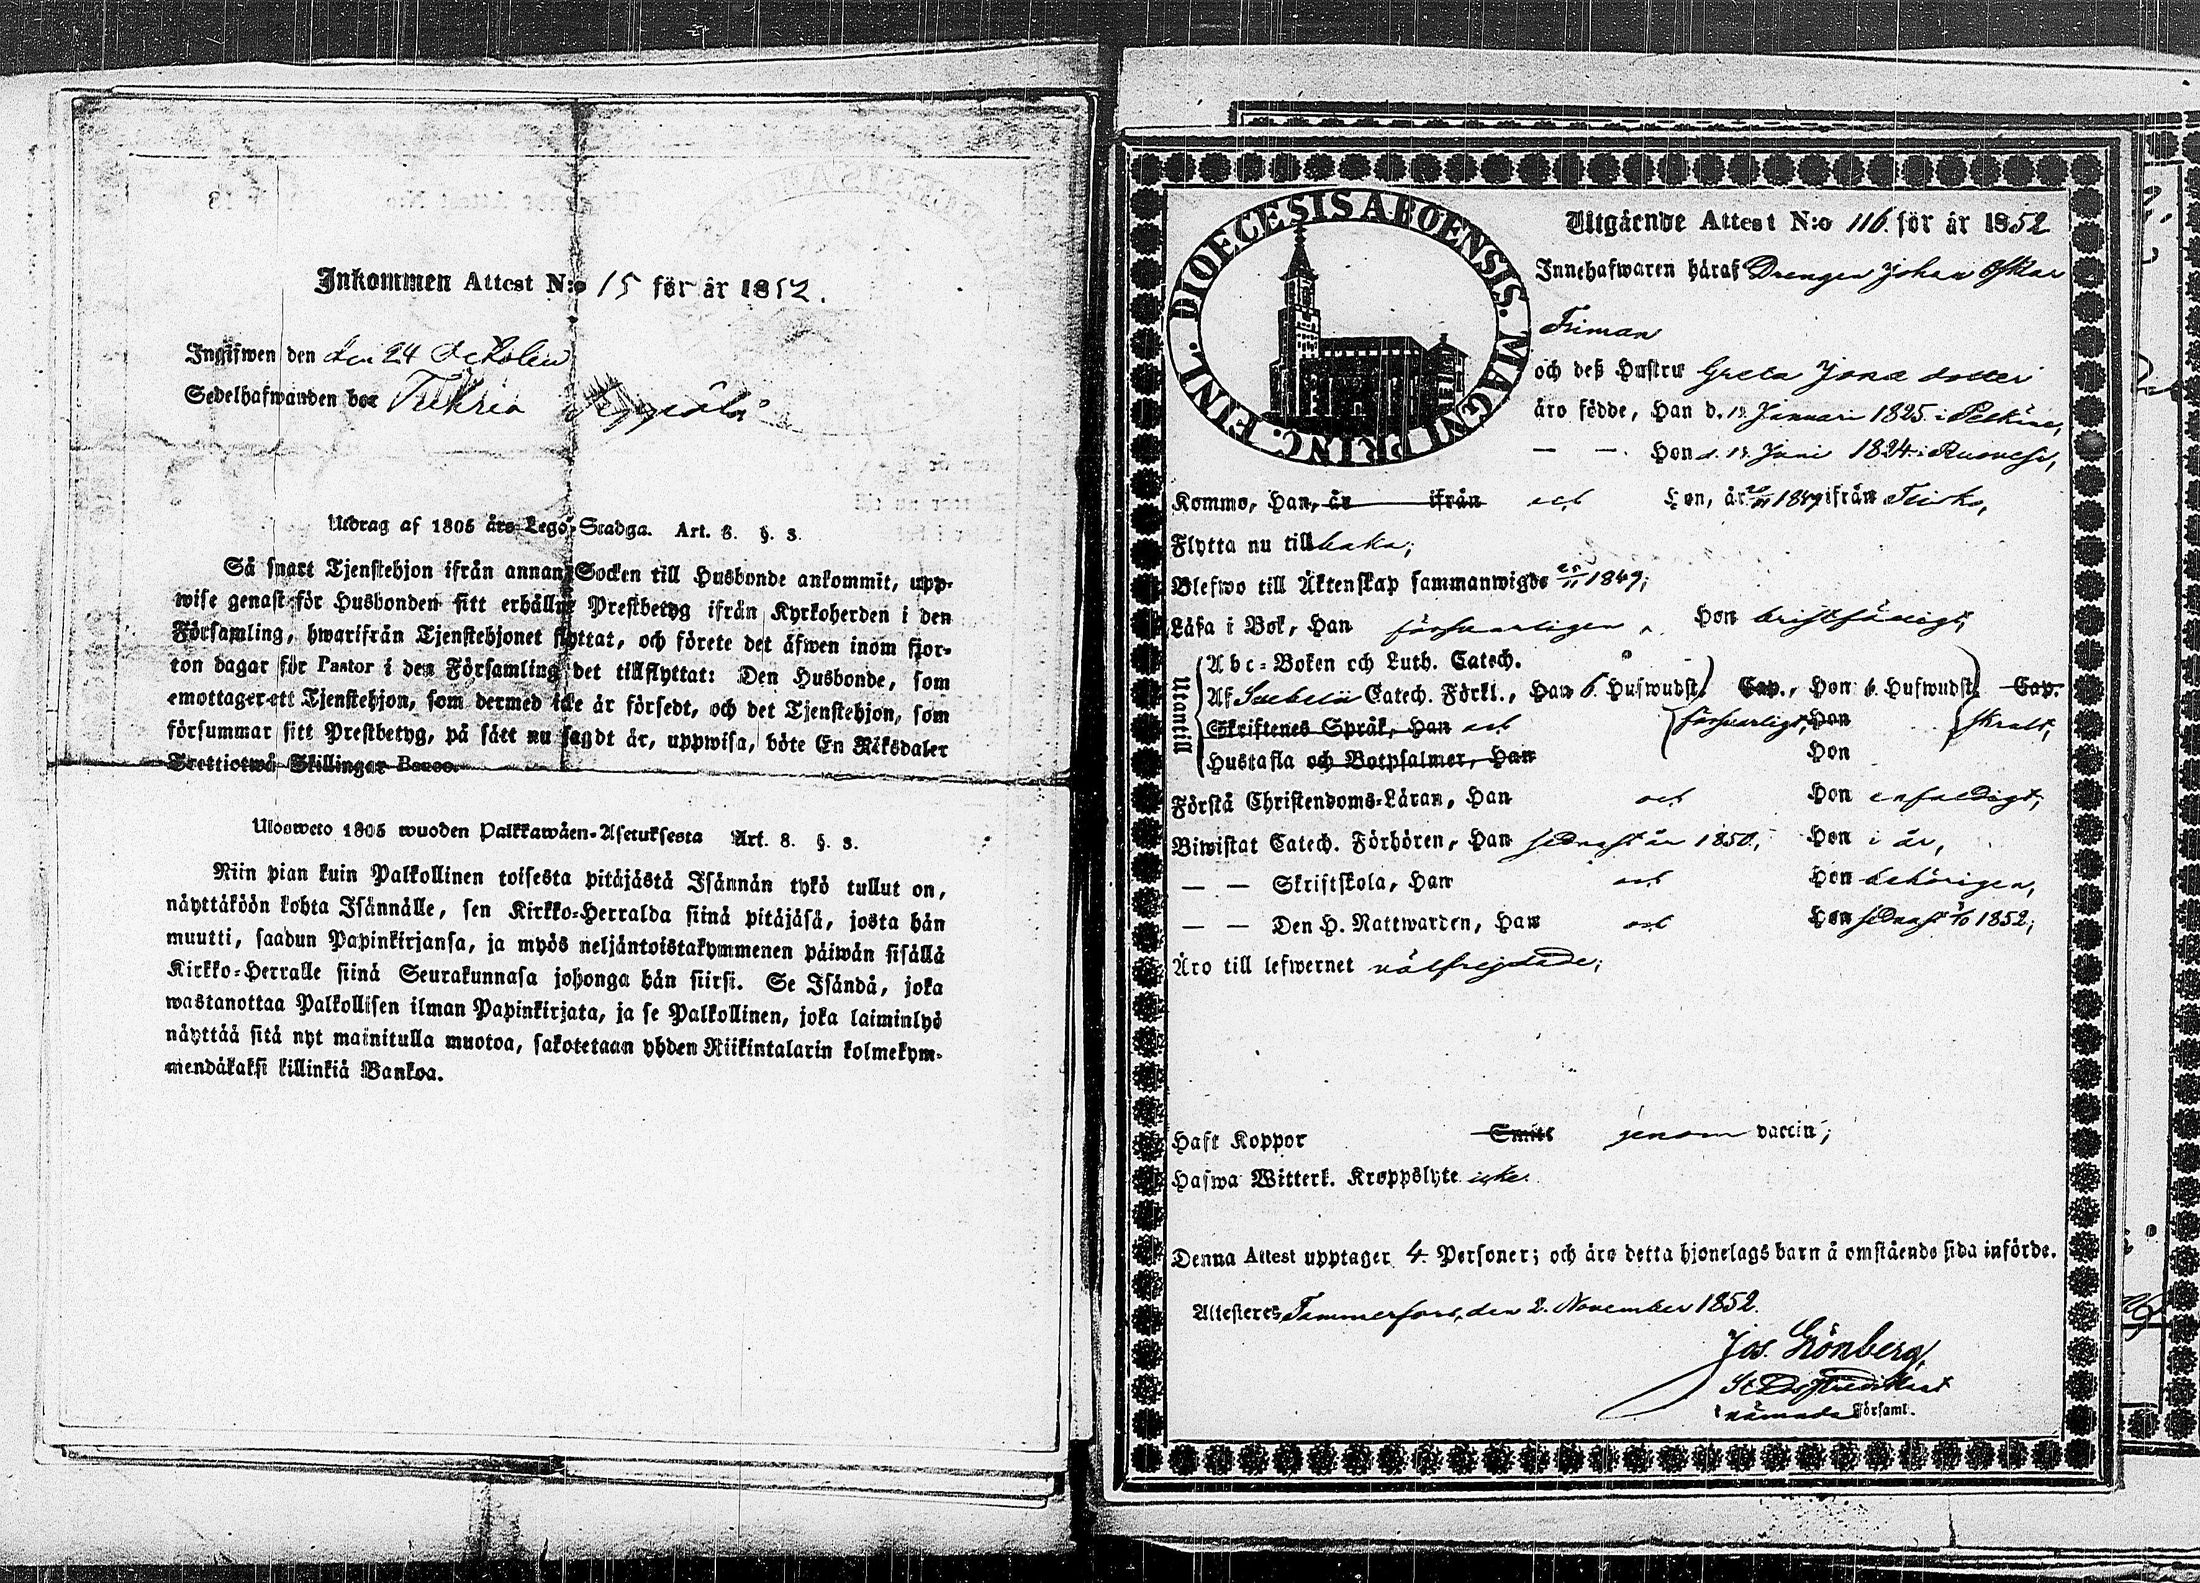 Inkommen Attest N:o 15 för år 1852.
Ingifwen den den 24 October
Sedelhafwanden bor
Utdrag af 1805 års Lego-Stadga. Art. 8. §. 3.
Så snart Tjenstehjon ifrån annan Socken till Husbonde ankommit, upp-
wise genast för Husbonden sitt erhållne Prestbetyg ifrån Kyrkoherden i den
Församling, hwarifrån Tjenstehjonet flyttat, och förete det äfwen inom fjor-
ton dagar för Pastor i den Församling det tillflyttat: Den Husbonde, som
emottager ett Tjenstehjon, som dermed icke är försedt, och det Tjenstehjon, som
försummar sitt Prestbetyg, på sätt nu sagdt är, uppwisa, böte En Riksdaler
Trettiotwå Skillingar Banco.
Ulosweto 1805 wuoden Palkkawäen-Asetuksesta Art. 8. §. 3.
Niin pian kuin Palkollinen toisesta pitäjästä Isännän tykö tullut on,
näyttäköön kohta Isännälle, sen Kirkko-Herralda siinä pitäjäsä, josta hän
muutti, saadun Papinkirjansa, ja myös neljäntoistakymmenen päiwän sisällä
Kirkko-Herralle siinä Seurakunnasa johonga hän siirsi. Se Isändä, joka
wastanottaa Palkollisen ilman Papinkirjata, ja se Palkollinen, joka laiminlyö
näyttää sitä nyt mainitulla muotoa, sakotetaan yhden Riikintalarin kolmekym-
mendäkaksi killinkiä Bankoa.
DIOECESIS ABOENSIS. MAGNI PRINC. FINL.
Utgående Attest N:o 116. för år 1852
Innehafwaren häraf Drengen Johan Oskar
Friman
och deß Hustru Greta Jonæ dotter
äro födde, Han d. 12 Januari 1825 i Pelkäne,
— — Hon d. 18 Juni 1824 i Ruovesi,
Kommo, Han, är ifrån och Hon, år 1849 ifrån
Flytta nu tillbaka;
Blefwo till Äktenskap sammanwigde 25/11 1849;
Läsa i Bok, Han försvarligen, Hon bristfälligt,
Utantill
Abc-Boken och Luth. Catech.
Af Svebelii Catech. Förkl., Han 6 Hufwudst. Cap., Hon 6. Hufwudst. Cap.
Skriftenes Språk, Han och försvarligt, Hon svalt,
Hustafla och Botpsalmer, Han Hon
Förstå Christendoms-Läran, Han och Hon enfaldigt,
Biwistat Catech. Förhören, Han sednast år 1850, Hon i år,
— — Skriftskola, Han och Hon behörigen,
— — Den H. Nattwarden, Han och Hon sednast 1852;
Äro till lefwernet välfrejdade;
Haft Koppor Smitt genom vaccin;
Hafwa Witterl. Kroppslyte icke.
Denna Attest upptager 4. Personer; och äro detta hjonelags barn å omstående sida införde.
Attesteres Tammerfors, den 2. November 1852.
Jos. Grönberg,
i nämnda Församl.